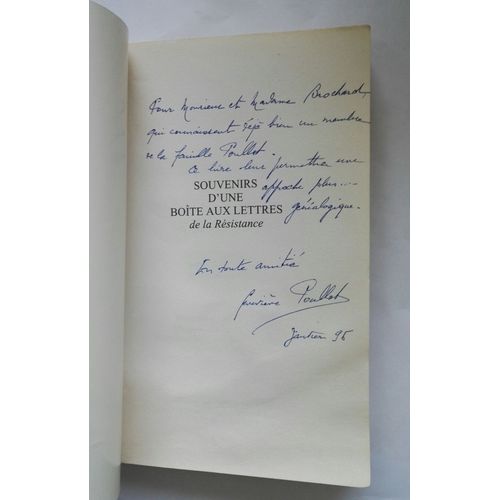 Pour Monsieur et Madame Brochard,
qui connaissent déjà bien un membre
de la famille Poullot.
Ce livre leur permettra une
SOUVENIRS approche plus...
D'UNE
BOÎTE AUX LETTRES généalogique.
de la Résistance
En toute amitié
Geneviève Poullot
Janvier 96